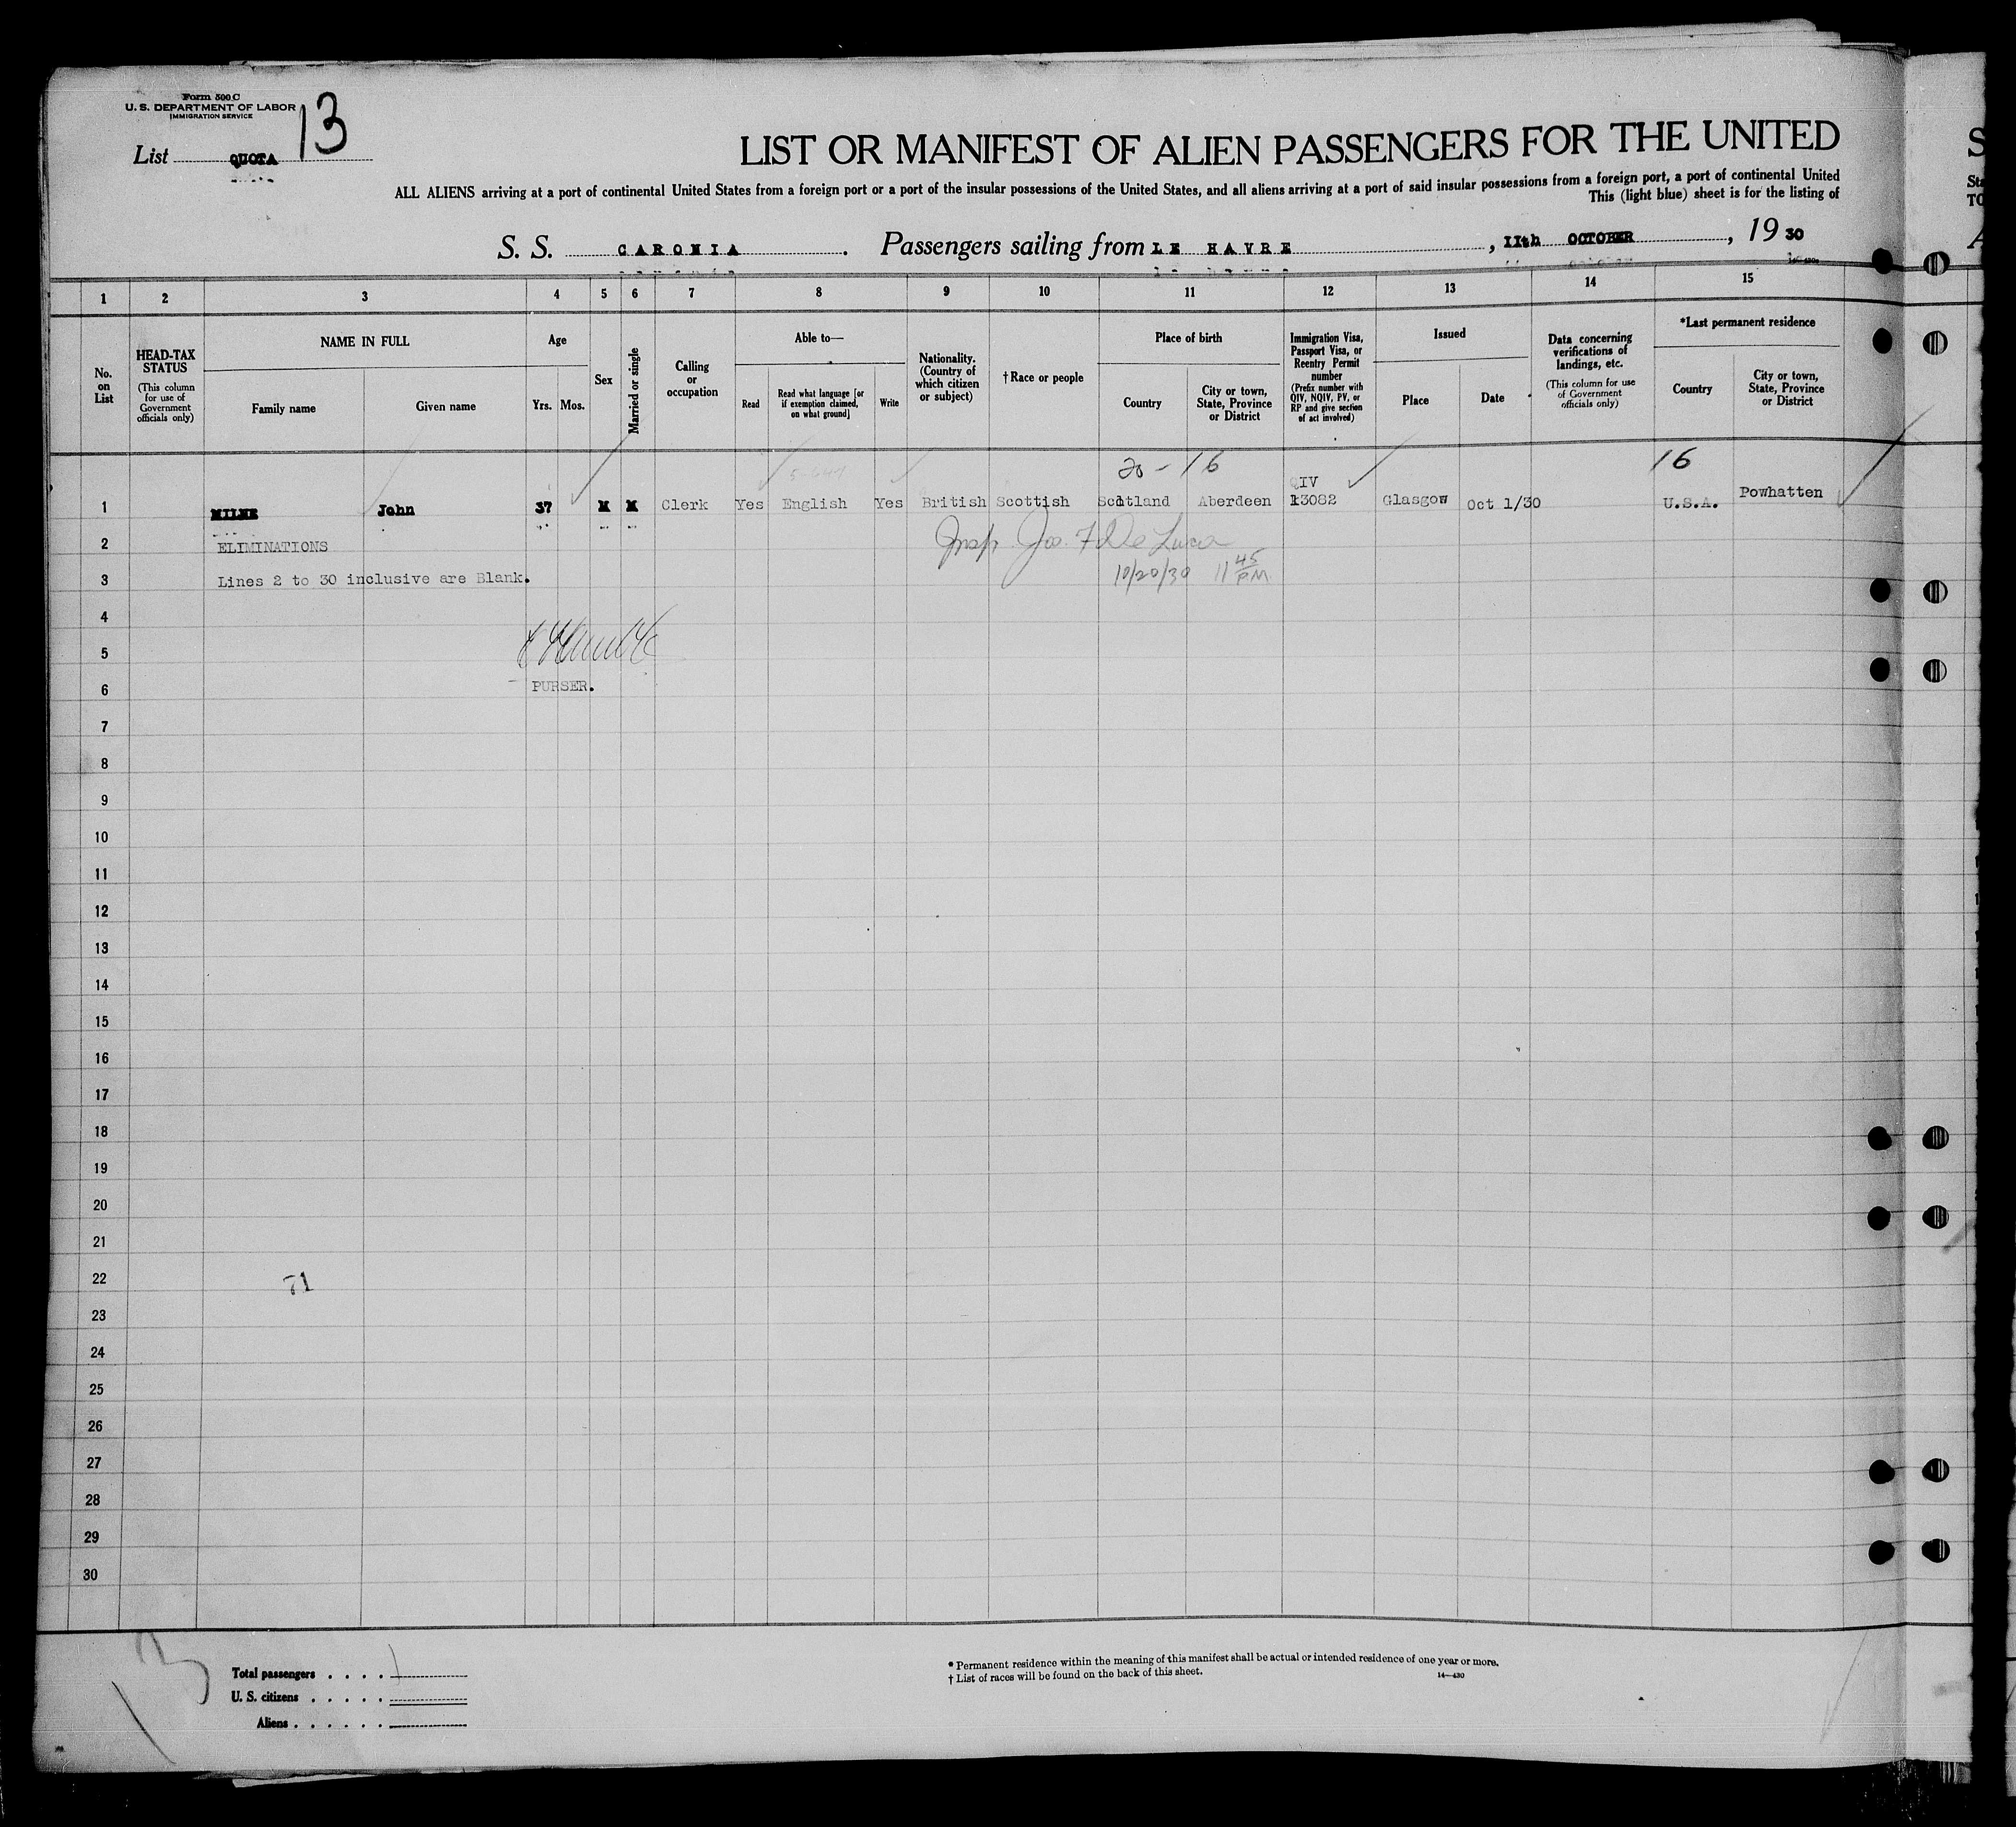 Form 500 C
U. S. DEPARTMENT OF LABOR
IMMIGRATION SERVICE
List QUOTA 13
LIST OR MANIFEST OF ALIEN PASSENGERS FOR THE UNITED
ALL ALIENS arriving at a port of continental United States from a foreign port or a port of the insular possessions of the United States, and all aliens arriving at a port of said insular possessions from a foreign port, a port of continental United
This (light blue) sheet is for the listing of
S. S. CARONIA. Passengers sailing from LE HAVRE, 11th OCTOBER, 19 30
1 2 3 4 5 6 7 8 9 10 11 12 13 14 15
No. on List
HEAD-TAX STATUS
(This column for use of Government officials only)
NAME IN FULL
Family name
Given name
Age
Yrs. Mos.
Sex
Married or single
Calling or occupation
Able to—
Read
Read what language [or if exemption claimed, on what ground]
Write
Nationality. (Country of which citizen or subject)
† Race or people
Place of birth
Country
City or town, State, Province or District
Immigration Visa, Passport Visa, or Reentry Permit number
(Prefix number with QIV, NQIV, PV, or RP and give section of act involved)
Issued
Place
Date
Data concerning verifications of landings, etc.
(This column for use of Government officials only)
*Last permanent residence
Country
City or town, State, Province or District
20 - 16
16
QIV
1 MILNE John 37 M M Clerk Yes English Yes British Scottish Scotland Aberdeen 13082 Glasgow Oct 1/30 U.S.A. Powhatten
2 ELIMINATIONS
Insp. Jos. F De Luca
3 Lines 2 to 30 inclusive are Blank.
10/20/30 11 45 P.M.
4
5
6 PURSER.
7
8
9
10
11
12
13
14
15
16
17
18
19
20
21
22 71
23
24
25
26
27
28
29
30
Total passengers . . . . 1
U. S. citizens . . . . .
Aliens . . . . . .
* Permanent residence within the meaning of this manifest shall be actual or intended residence of one year or more.
† List of races will be found on the back of this sheet.
14—430